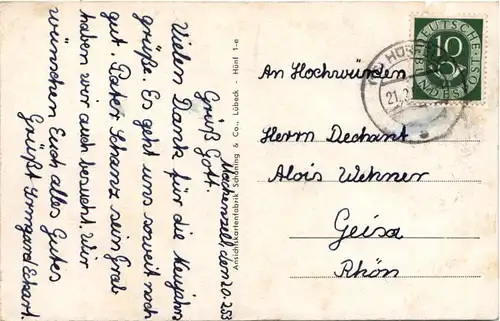 Mackenzell den 20.2.53
Grüß Gott.
Vielen Dank für die Neujahrs
grüße. Es geht uns soweit noch
gut. Pater Schanz sein Grab
haben wir auch besucht. Wir
wünschen Euch alles Gutes
Grüßt Irmgard Eckart.
Ansichtskartenfabrik Schöning & Co., Lübeck - Hünf 1-e
DEUTSCHE POST
10
21.2
An Hochwürden
Herrn Dechant
Alois Wehner
Geisa
Rhön